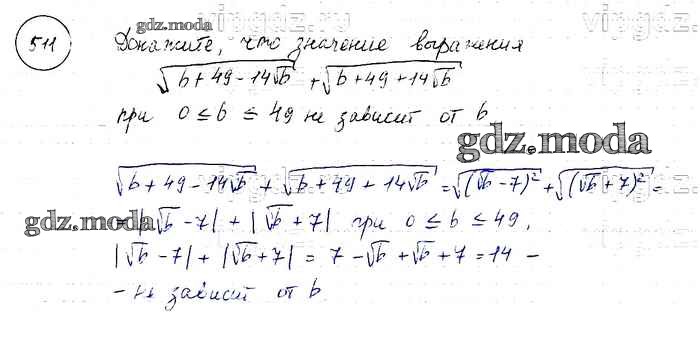 vipgdz.ru
vipgdz.ru
gdz.moda
511
Докажите, что значение выражения
√(b + 49 - 14√b) + √(b + 49 + 14√b)
при 0 ≤ b ≤ 49 не зависит от b
gdz.moda
√(b + 49 - 14√b) + √(b + 49 + 14√b) = √((√b - 7)²) + √((√b + 7)²) =
= |√b - 7| + |√b + 7| при 0 ≤ b ≤ 49,
gdz.moda
|√b - 7| + |√b + 7| = 7 - √b + √b + 7 = 14 -
- не зависит от b